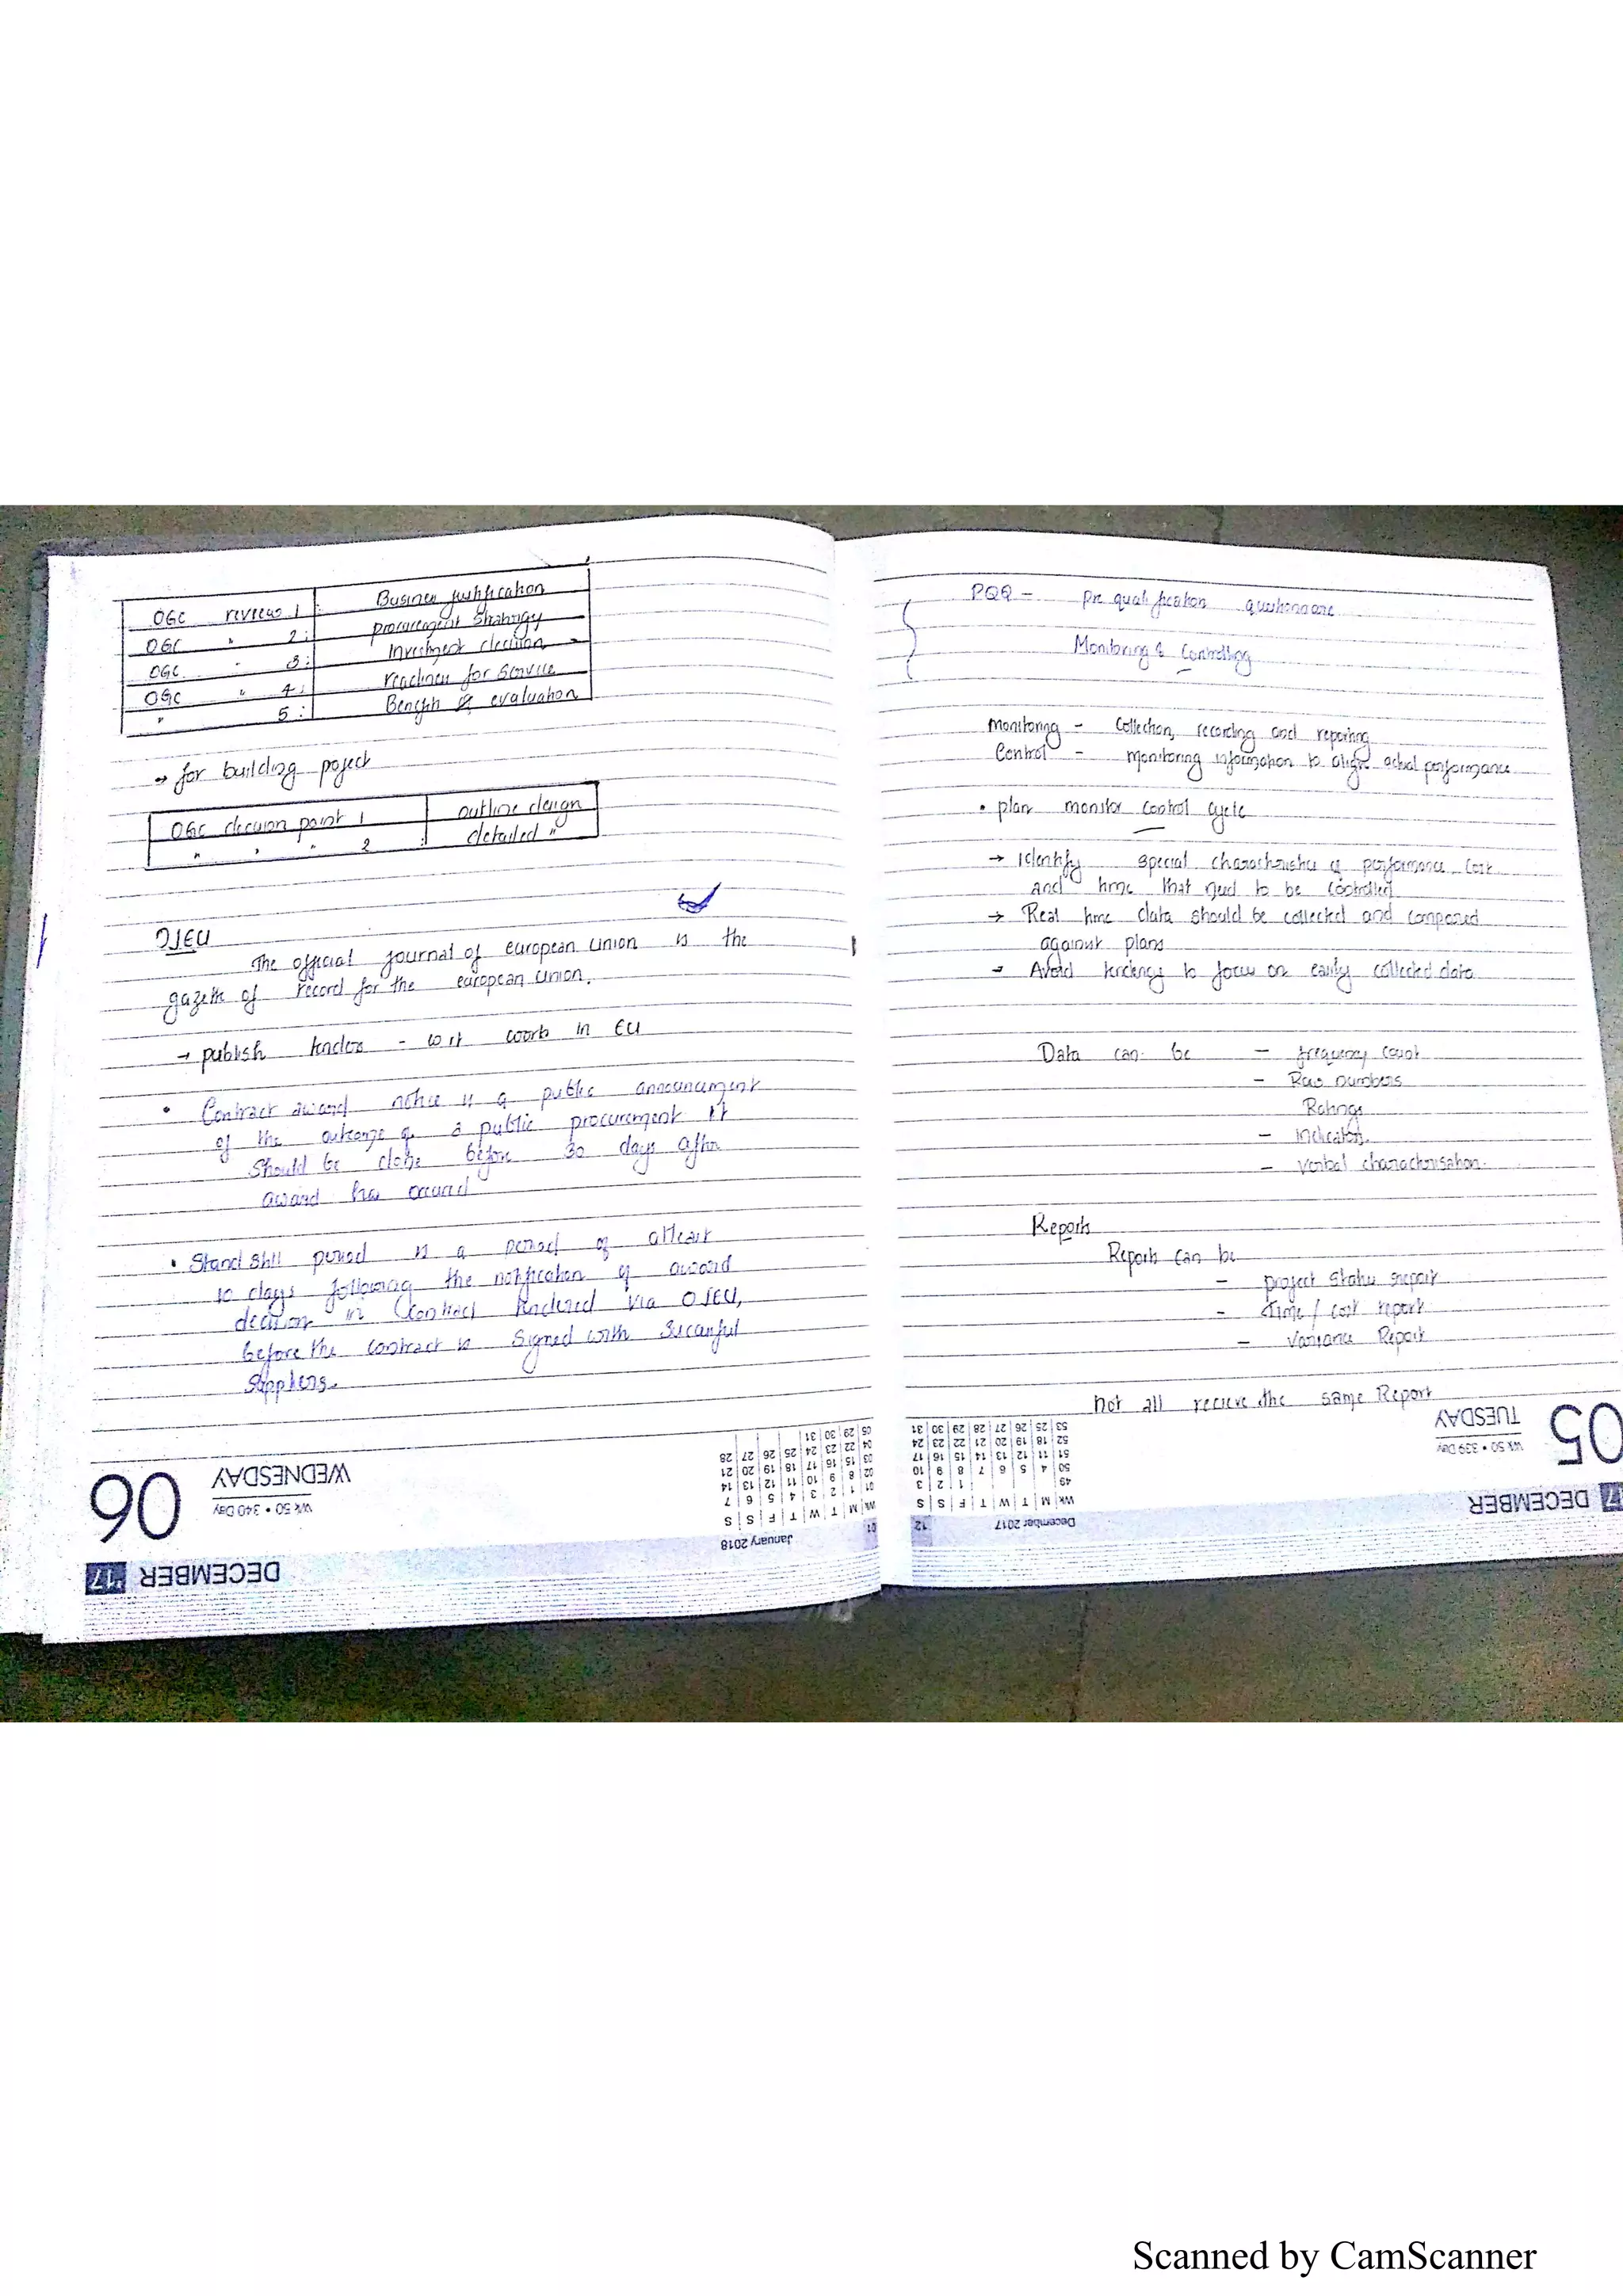 OGC review 1 : Business justification
OGC " 2 : procurement Strategy
OGC " 3 : Investment decision
OGC " 4 : readiness for service
" 5 : Benefits & evaluation
→ for building poject
OGC decision point 1 outline design
" " " 2 : detailed "
OJEU
The official journal of european union is the
gazette of record for the european union.
→ publish tenders - work in EU
• Contract award notice is a public announcement
of the outcome of a public procurement it
should be done before 30 days after
award has occured
• Stand still period is a period of atleast
10 days following the notification of award
decision in contract tendered via OJEU,
before the contract is signed with sucessful
Suppliers.
06
WEDNESDAY
Wk 50 • 340 Day
DECEMBER '17
January 2018 01
Wk M T W T F S S
01 1 2 3 4 5 6 7
02 8 9 10 11 12 13 14
03 15 16 17 18 19 20 21
04 22 23 24 25 26 27 28
05 29 30 31
PQQ - pre qualification questionnaire
Monitoring & Controlling
Monitoring - Collection, recording and reporting
Control - monitoring information to align actual performance
• plan monitor control cycle
→ Identify special characteristics of performance cost
and time that need to be controlled
→ Real time data should be collected and compared
against plans
→ Avoid tendency to focus on easily collected data
Data can be - frequency count
- Raw numbers
Ratings
- indicators.
- Verbal characterisation.
Reports
Reports can be
- project status report
- Time / cost report
- Variance Report
not all recieve the same Report
05
TUESDAY
Wk 50 • 339 Day
DECEMBER 17
December 2017 12
Wk M T W T F S S
49 1 2 3
50 4 5 6 7 8 9 10
51 11 12 13 14 15 16 17
52 18 19 20 21 22 23 24
53 25 26 27 28 29 30 31
Scanned by CamScanner